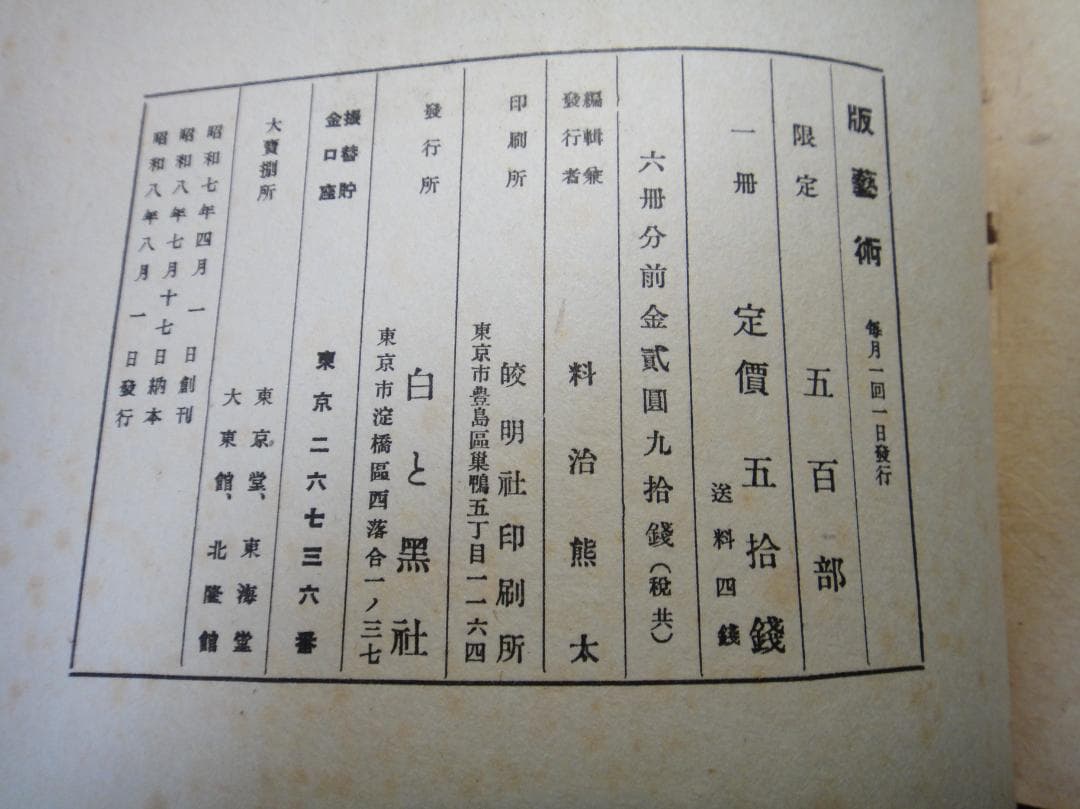 版藝術 每月一回一日發行
限定 五百部
一冊 定價五拾錢
送料四錢
六冊分前金貳圓九拾錢(稅共)
編輯兼
發行者
料治熊太
印刷所 皎明社印刷所
東京市豊島區巢鴨五丁目一一六四
發行所 白と黑社
東京市淀橋區西落合一ノ三七
振替貯
金口座
東京二六七三六番
大賣捌所 東京堂、東海堂
大東館、北隆館
昭和七年四月一日創刊
昭和八年七月十七日納本
昭和八年八月一日發行